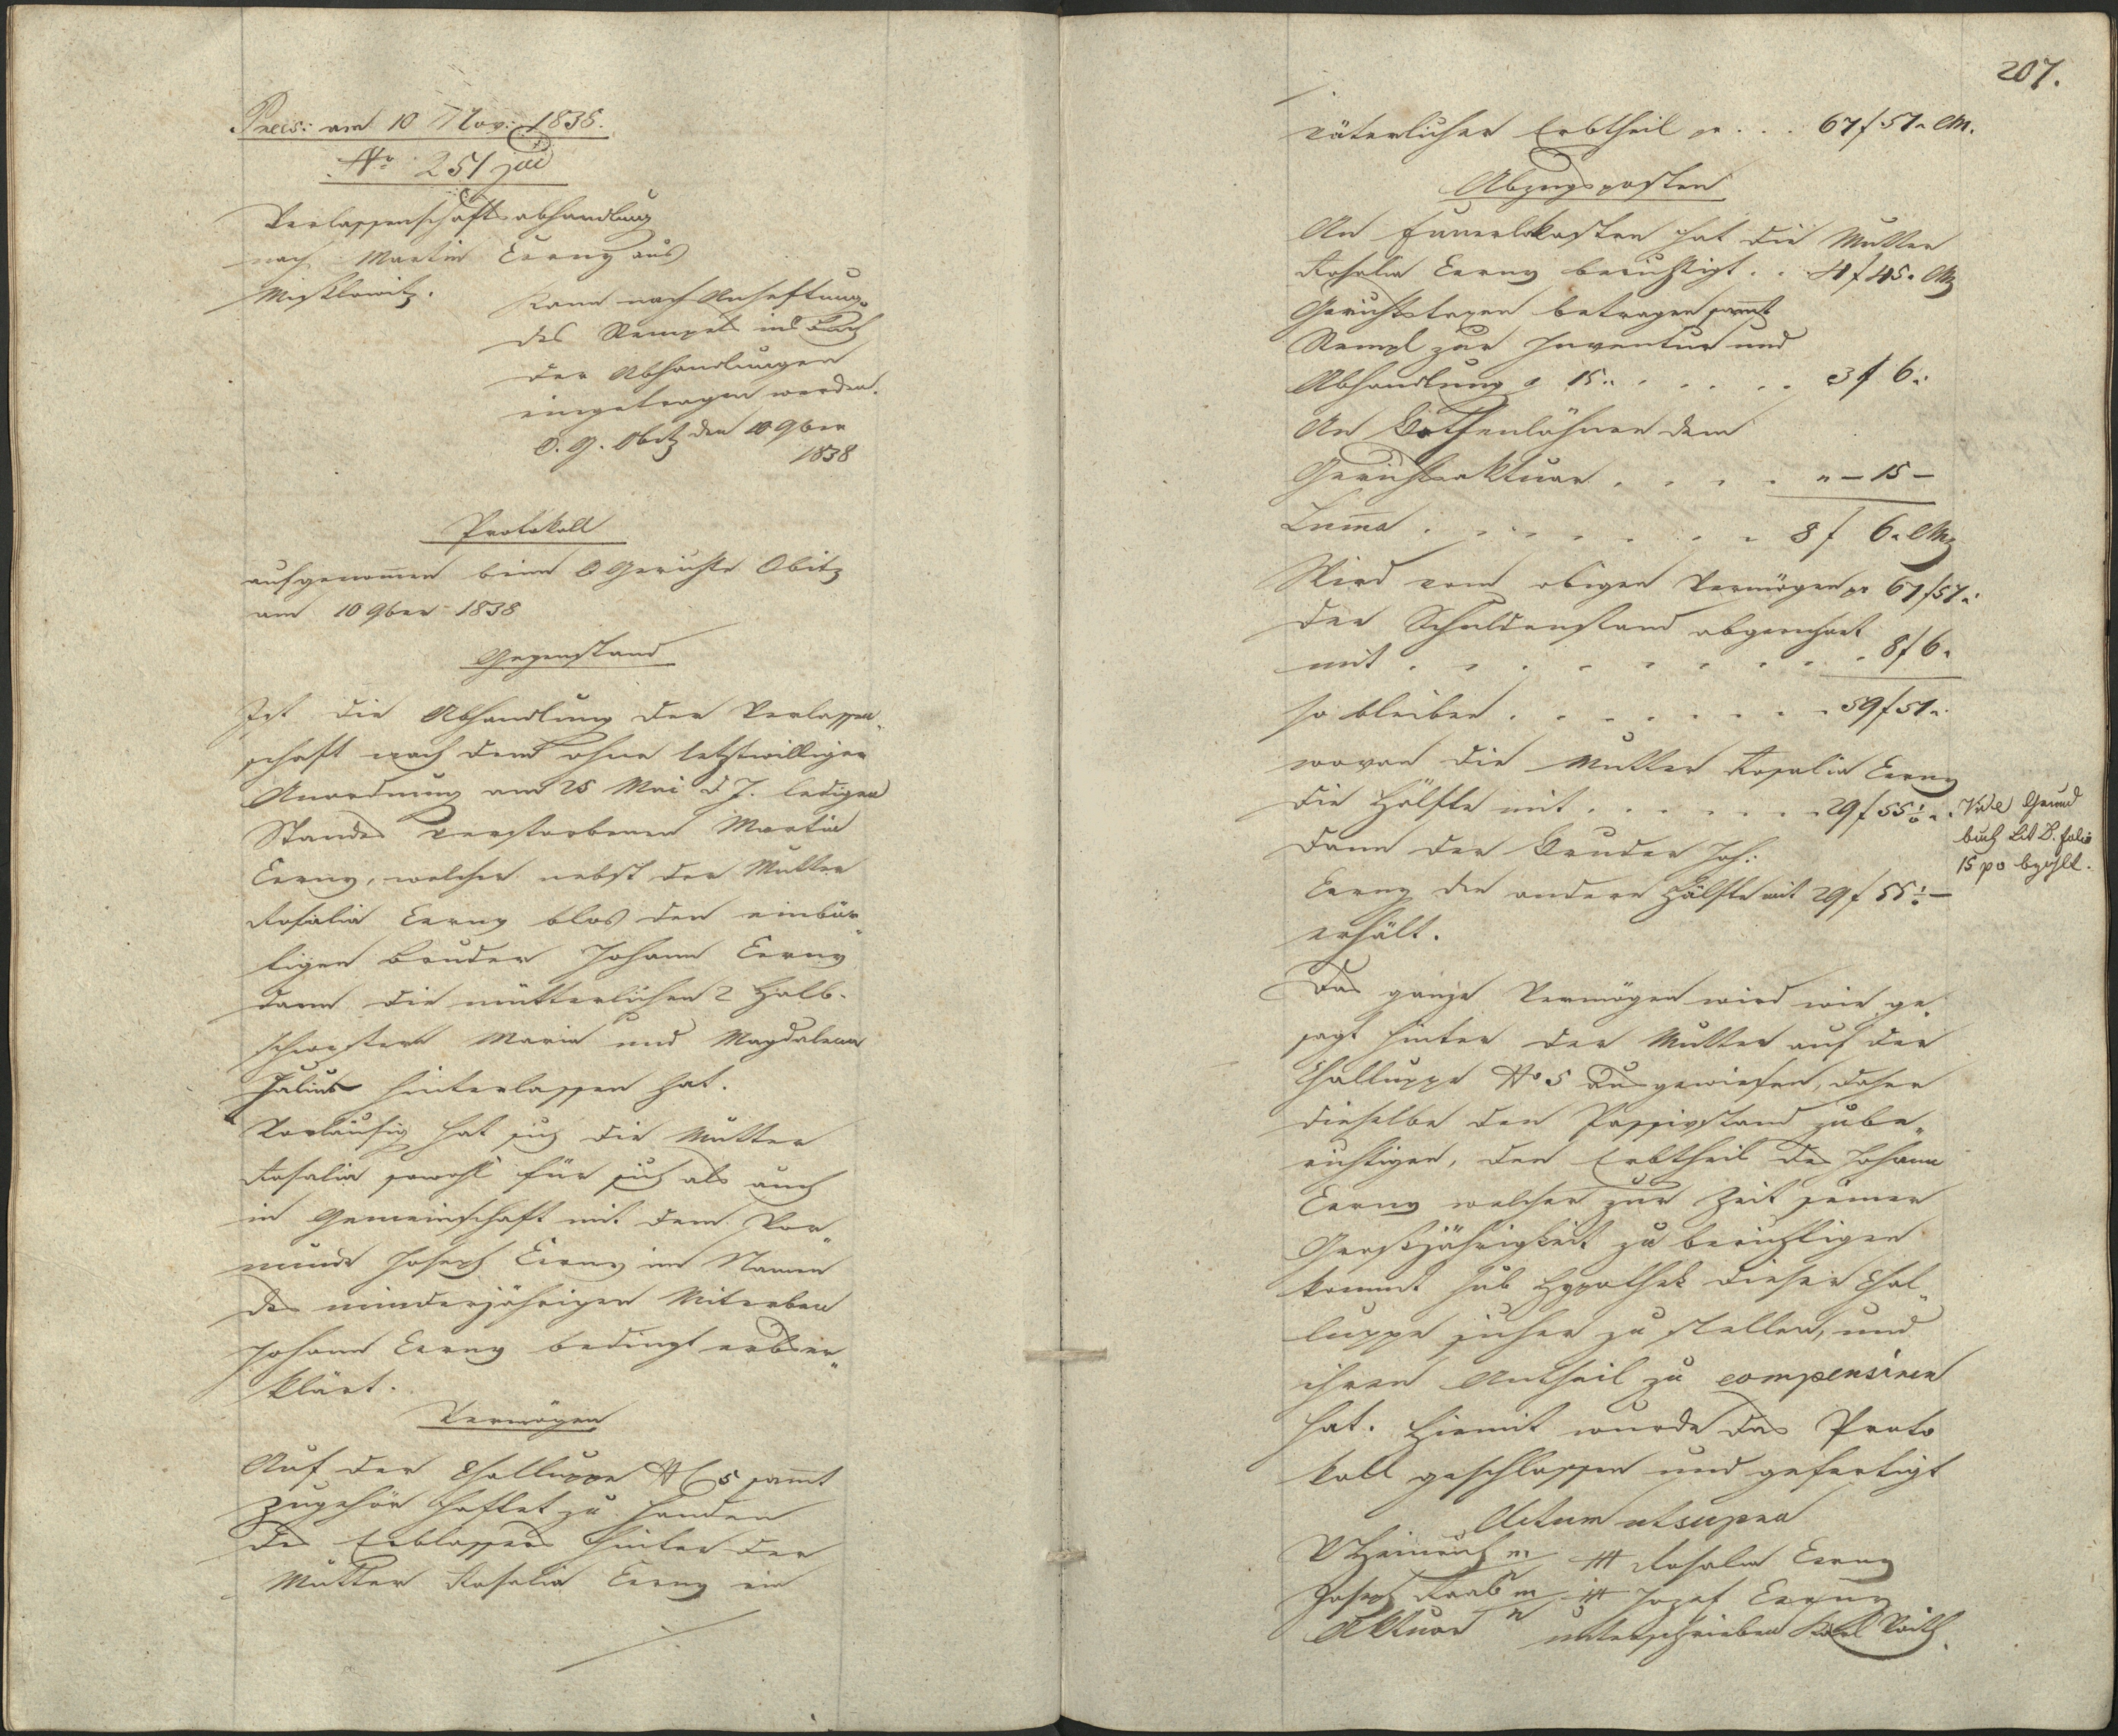 Preces: am 10 Nov: 1838.
No 251 jud
Verlassenschaftsabhandlung
nach Martin Cerny aus
Mißlowitz.
Kann nach Anheftung
des Stempels ins Buch
der Abhandlungen
eingetragen werden.
O. G. Obitz den 10 9ber
1838
Protokoll
aufgenommen beim O Gerichte Obitz
am 10 9ber 1838
Gegenstand
Ist die Abhandlung der Verlassen„
schaft nach dem ohne letztwilliger
Anordnung am 25 Mai d J. ledigen
Standes verstorbenen Martin
Cerny, welcher nebst der Mutter
Rosalia Cerny blos den einbür„
tigen Bruder Johann Cerny
dann die mütterlichen 2 Halb-
schwestern Maria und Magdalena
hinterlassen hat.
Vorläufig hat sich die Mutter
Rosalia sowohl für sich als auch
in Gemeinschaft mit dem Vor„
munde Joseph Cerny im Namen
des minderjährigen Miterben
Johann Cerny bedingt erbser„
klärt.
Vermögen
Auf der Challuppe NC 5 sammt
Zugehör haftet zu Handen
des Erblassers hinter der
Mutter Rosalia Cerny ein
207.
väterlicher Erbtheil pr . . . 67 f 57 „ CM.
Abzugsposten
An Funeralkosten hat die Mutter
Rosalia Cerny berichtigt . . 4 f 45 „ CMz
Gerichtstaxen betragen sammt
Stempl zur Inventur und
Abhandlung a 15 „ . . . . . 3 f 6 „
An Bothenlöhnen dem
Gerichtsaktuar . . . . „ – 15 –
Suma . . . . . . . 8 f 6 „ CMz
Wird vom obigen Vermögen pr 67 f 57 „
der Schuldenstand abgerechnet
mit . . . . . . . . . 8 f 6 „
so bleiben . . . . . . . . 59 f 51 „
wovon die Mutter Rosalia Cerny
die Hälfte mit . . . . . . 29 f 55 ½ „
dann der Bruder Joh:
Cerny die andere Hälfte mit 29 f 55 ½ –
erhält.
Vide Grund
buch Lit B. folio
15 po bezhlt.
Das ganze Vermögen wird wie ge„
sagt hinter der Mutter auf der
Challuppe No 5 ausgewiesen, daher
dieselbe den Passivstand zube„
richtigen, den Erbtheil des Johann
Cerny welcher zur Zeit seiner
Großjährigkeit zu berichtigen
kommt sub Hypothek dieser Chal„
luppe sicher zu stellen, und
ihren Antheil zu compensiren
hat. Hiemit wurde das Proto
koll geschlossen und gefertigt
Actum ut supra
Heinrich m +++ Rosalia Cerny
Joseph Raab m +++ Jozef Cerny
Aktuar unterschrieben Karl Veith